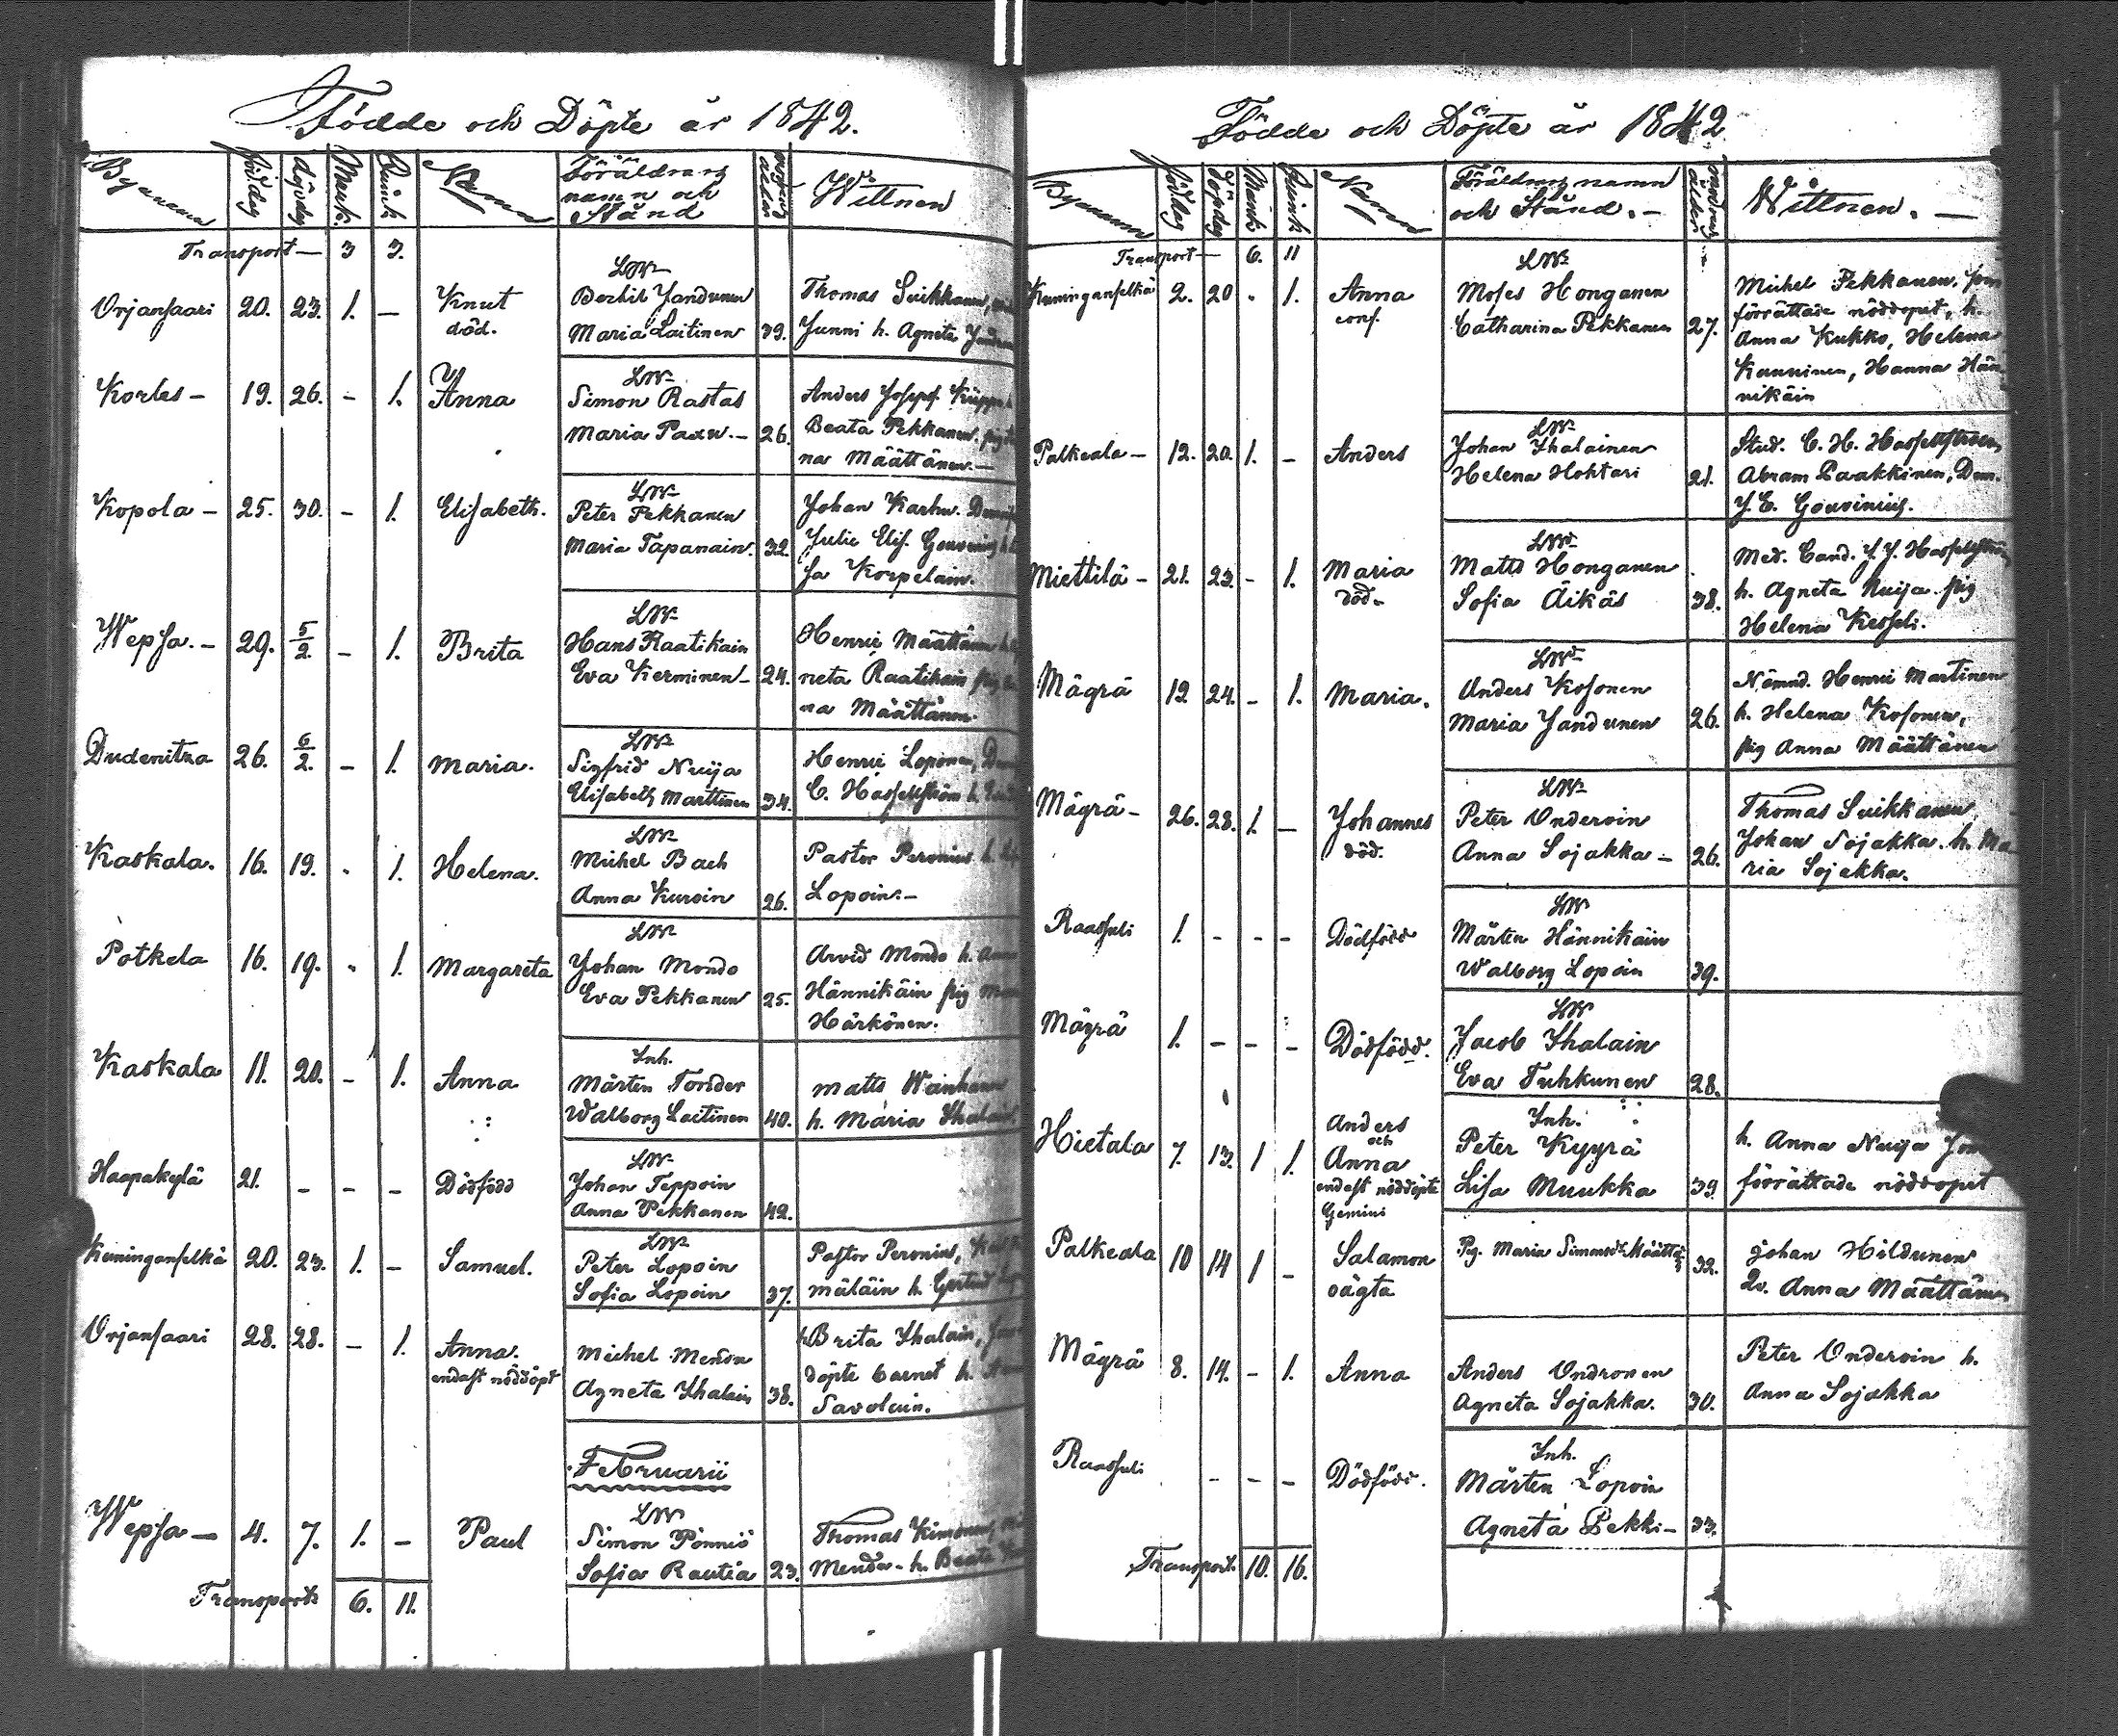 Födde och Döpte år 1842.
Bynamn födelag döpdag Mank. Quink. Namn Föräldrars namn och Stånd modrens ålder Wittnen
Transport — 3 3.
LW
Orjansaari 20. 23. 1. — Knut Bertil Jandunen Thomas Suikkanen,
död. Maria Laitinen 39. Junni h. Agneta
LW
Korles — 19. 26. - 1. Anna Simon Rastas Anders Joseps.
Maria Paxu. — 26. Beata Pekkanen.
nas Määttänen. —
LW
Kopola — 25. 30. - 1. Elisabeth. Peter Pekkanen Johan Karhu.
Maria Tapanain. 32. Julie Elis.
sa Korpelain.
LW
Wepsa. — 29. 5/2. - 1. Brita Hans Raatikain Henric Määttänen
Eva Kerminen — 24. neta Raatikain pig
na Määttänen.
LW
Dudenitza 26. 6/2. - 1. Maria. Sigfrid Nuija Henric Loponen,
Elisabeth Marttinen 34. C. Hasselström h.
LW
Kaskala. 16. 19. - 1. Helena. Michel Bach Pastor Peronius h.
Anna Kuroin 26. Lopoin. —
LW
Potkela 16. 19. - 1. Margareta Johan Mondo Arvid Mondo h.
Eva Pekkanen 25. Hännikäin pig
Härkönen.
Inh.
Kaskala 11. 20. - 1. Anna Mårten Tonder Matts Wainhanen
Walborg Laitinen 40. h. Maria Ihalain.
LW
Haapakylä 21. - - - Dödfödd Johan Teppoin
Anna Pekkanen 42.
LW
Kuninganselkä 20. 23. 1. - Samuel. Peter Lopoin Pastor Peronius,
Sofia Lopoin 37. mäläin h. Gertrud
Orjansaari 28. 28. - 1. Anna. Michel Mendu h Brita Ihalain,
endast nöddöpt Agneta Ihalain 38. döpte barnet h.
Savolain.
Februarii
LW
Wepsa — 4. 7. 1. - Paul Simon Pönniö Thomas Kimonen,
Sofia Rautia 23. Mendu - h. Beata
Transport 6. 11.
Födde och Döpte år 1842
Bynamn födlag Döpdag Mank. Quink. Namn Föräldrars namn och Stånd. — modrens ålder Wittnen. —
Transport — 6. 11
LW
Kuninganselkä 2. 20 - 1. Anna Moses Honganen Michel Pekkanen, som
conf. Catharina Pekkanen 27. förrättade nöddopet, h.
Anna Kukko, Helena
Kunninen, Hanna Hän
nikäin
LW
Palkeala — 12. 20. 1. - Anders Johan Ihalainen Stud. C. H. Hasselström
Helena Hohtari 21. Abram Paakkinen, Dem.
J. E. Gouvinius.
LW
Miettilä — 21. 23. - 1. Maria Matts Honganen Med. Cand. J. J. Hasselström
död. Sofia Äikäs 38. h. Agneta Nuija. pig
Helena Kesseli.
LW
Mägrä 12 24. - 1. Maria. Anders Kosonen Nämnd. Henric Martinen
Maria Jandunen 26. h. Helena Kosonen,
pig Anna Määttänen
LW
Mägrä — 26. 28. 1. - Johannes Peter Onderoin Thomas Suikkanen
död. Anna Sojakka — 26. Johan Sojakka. h. Ma
ria Sojakka.
LW
Raasuli 1. - - - Dödfödd Mårten Hännikäin
Walborg Lopoin 39.
LW
Mägrä 1. - - - Dödfödd. Jacob Ihalain
Eva Tuhkunen 28.
Anders Inh.
Hietala 7. 13. 1 1. och Peter Kyyrä h. Anna Nuija
Anna Lisa Muukka 39. förrättade nöddopet
endast nöddöpte
Gemini
Palkeala 10 14 1 - Salamon Pig. Maria Simonsdr. Määttä 32. Johan Hildunen
oägta Qv. Anna Määttänen
Mägrä 8. 14. - 1. Anna Anders Ondronen Peter Onderoin h.
Agneta Sojakka. 30. Anna Sojakka
Inh.
Raasuli - - - Dödfödd. Mårten Lopoin
Agneta Pekki — 33.
Transport. 10. 16.